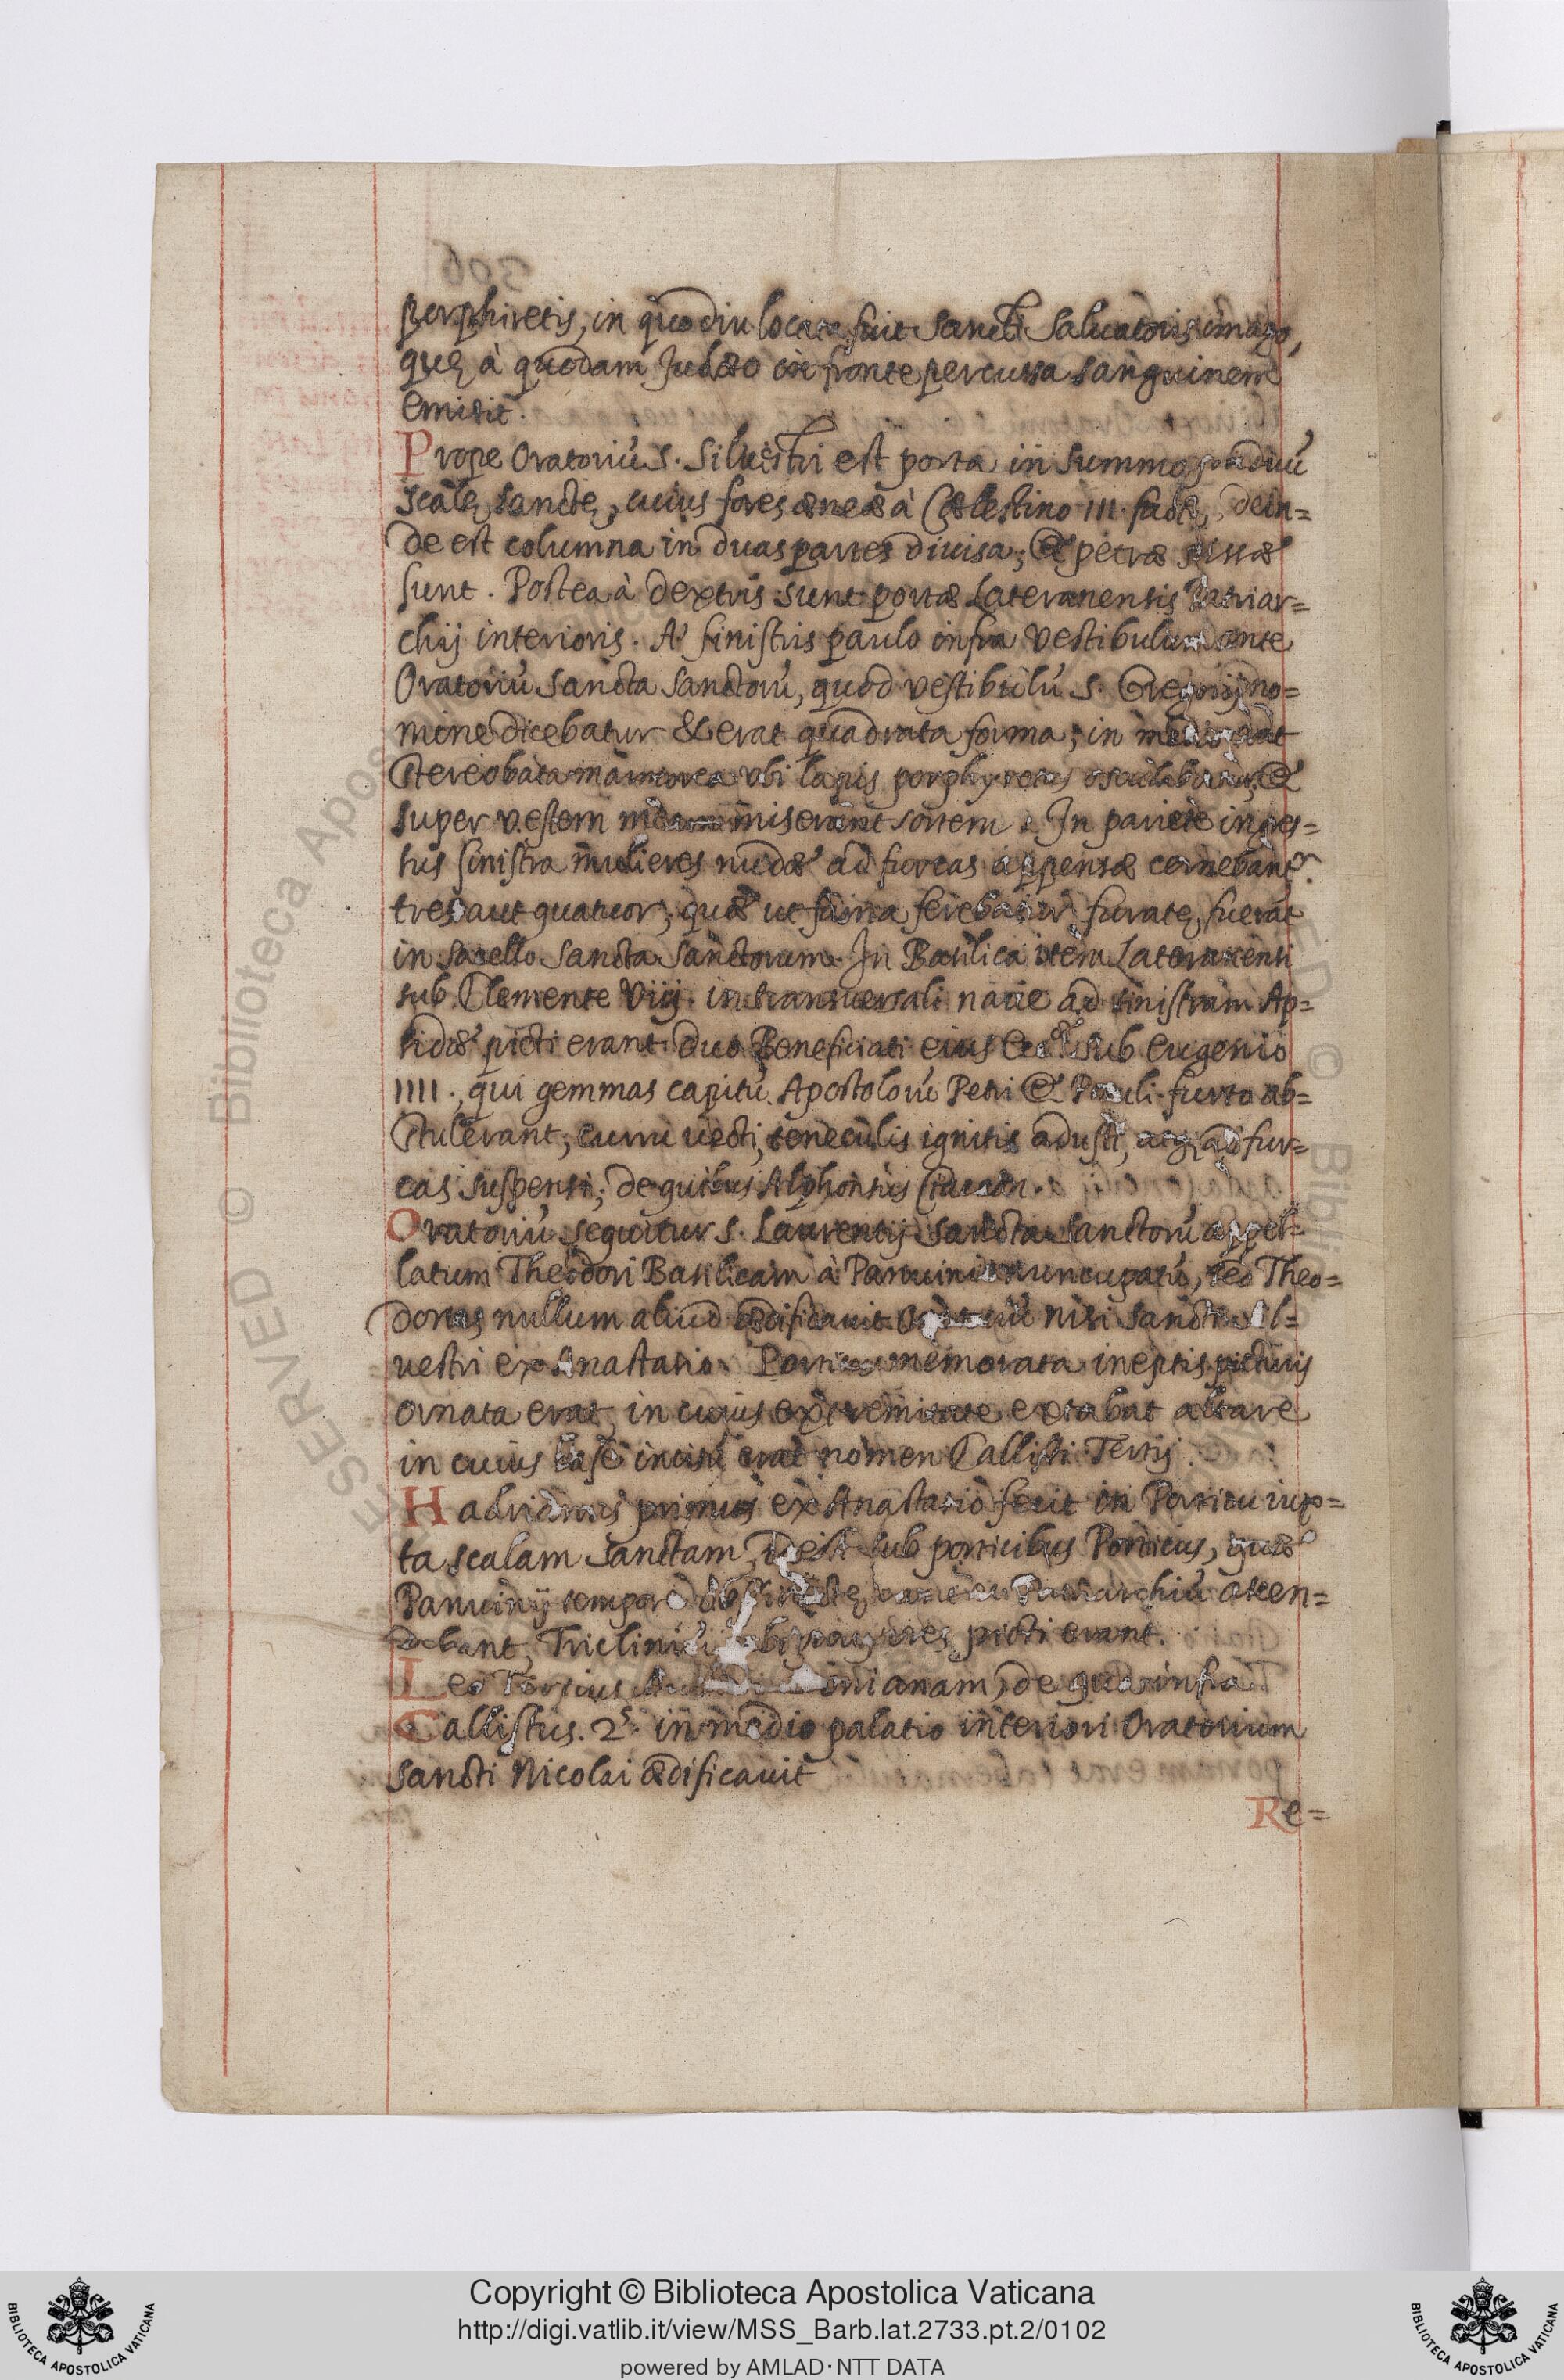 porphiretis, in quo diu locata fuit Sancti Saluatoris imago,
quę à quodam Judæo in fronte percussa sanguinem
emisit.
Prope Oratoriũ S. Siluestri est porta in summo graduũ
Scalę Sanctę, cuius fores æneæ à Cælestino III. factę, dein=
de est columna in duas partes diuisa; & petræ scissæ
sunt. Postea à dextris sunt portæ Lateranensis Patriar=
chij interioris. A' sinistris paulo infra vestibulum ante
Oratoriũ Sancta Sanctorũ, quod vestibulũ S. Gregorij no=
mine dicebatur & erat quadrata forma; in medio erat
Stereobata marmorea vbi lapis porphyreticus osculabatur, &
super vestem meam miserunt sortem. In pariete ingres=
sus sinistra mulieres nudæ ad furcas appensæ cernebant.r
tres aut quatuor, quæ ut fama ferebatur furatę fuerãt
in sacello Sancta Sanctorum. In Basilica item Lateranensi
sub Clemente Viij. in transuersali naue ad sinistram Ap=
sidæ picti erant duo Beneficiati eius Ecc.æ sub Eugenio
IIII., qui gemmas capitũ Apostolorũ Petri & Pauli furto ab=
stulerant, curru uecti, tenaculis ignitis adusti, atq; ad fur=
cas suspensi; de quibus Alphonsus Ciacon.
Oratoriũ sequitur S. Laurentij Sancta Sanctorũ appel=
latum Theodori Basilicam à Panuinio nuncupatũ, sed Theo=
dorus nullum aliud ædificauit Oratoriũ nisi Sancti Sil=
vestri ex Anastasio. Porticus memorata ineptis picturis
ornata erat, in cuius extremitate extabat altare
in cuius base incisũ erat nomen Callisti Tertij.
Hadrianus primus ex Anastasio fecit in Porticu iux=
ta scalam Sanctam, idest sub porticibus Porticus, quæ
Panuinij tempore Patriarchiũ osten=
debant, Tricliniũ ubi picti erant.
Leo Tertius onianam, de qua infra
Callistus. 2.s in medio palatio interiori Oratorium
Sancti Nicolai ædificauit
Re=
306
Copyright © Biblioteca Apostolica Vaticana
http://digi.vatlib.it/view/MSS_Barb.lat.2733.pt.2/0102
powered by AMLAD·NTT DATA
BIBLIOTECA APOSTOLICA VATICANA
BIBLIOTECA APOSTOLICA VATICANA